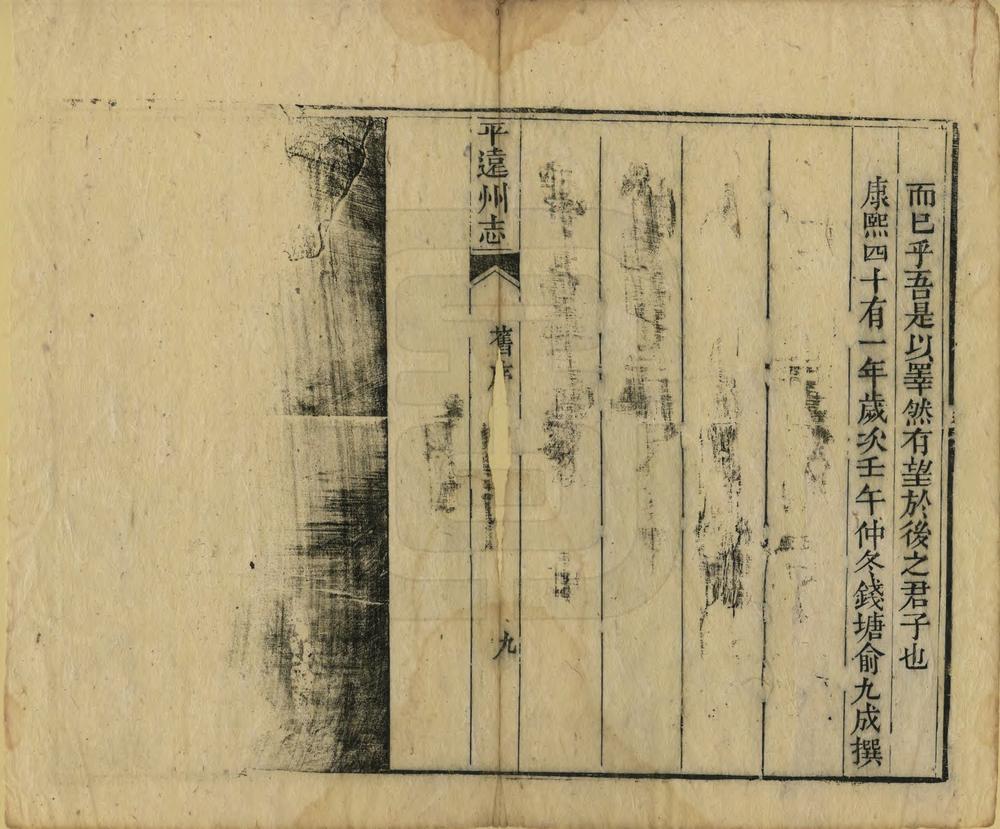 而已乎吾是以睪然有望於後之君子也
康熙四十有一年歲次壬午仲冬錢塘俞九成撰
平遠州志
舊序
九